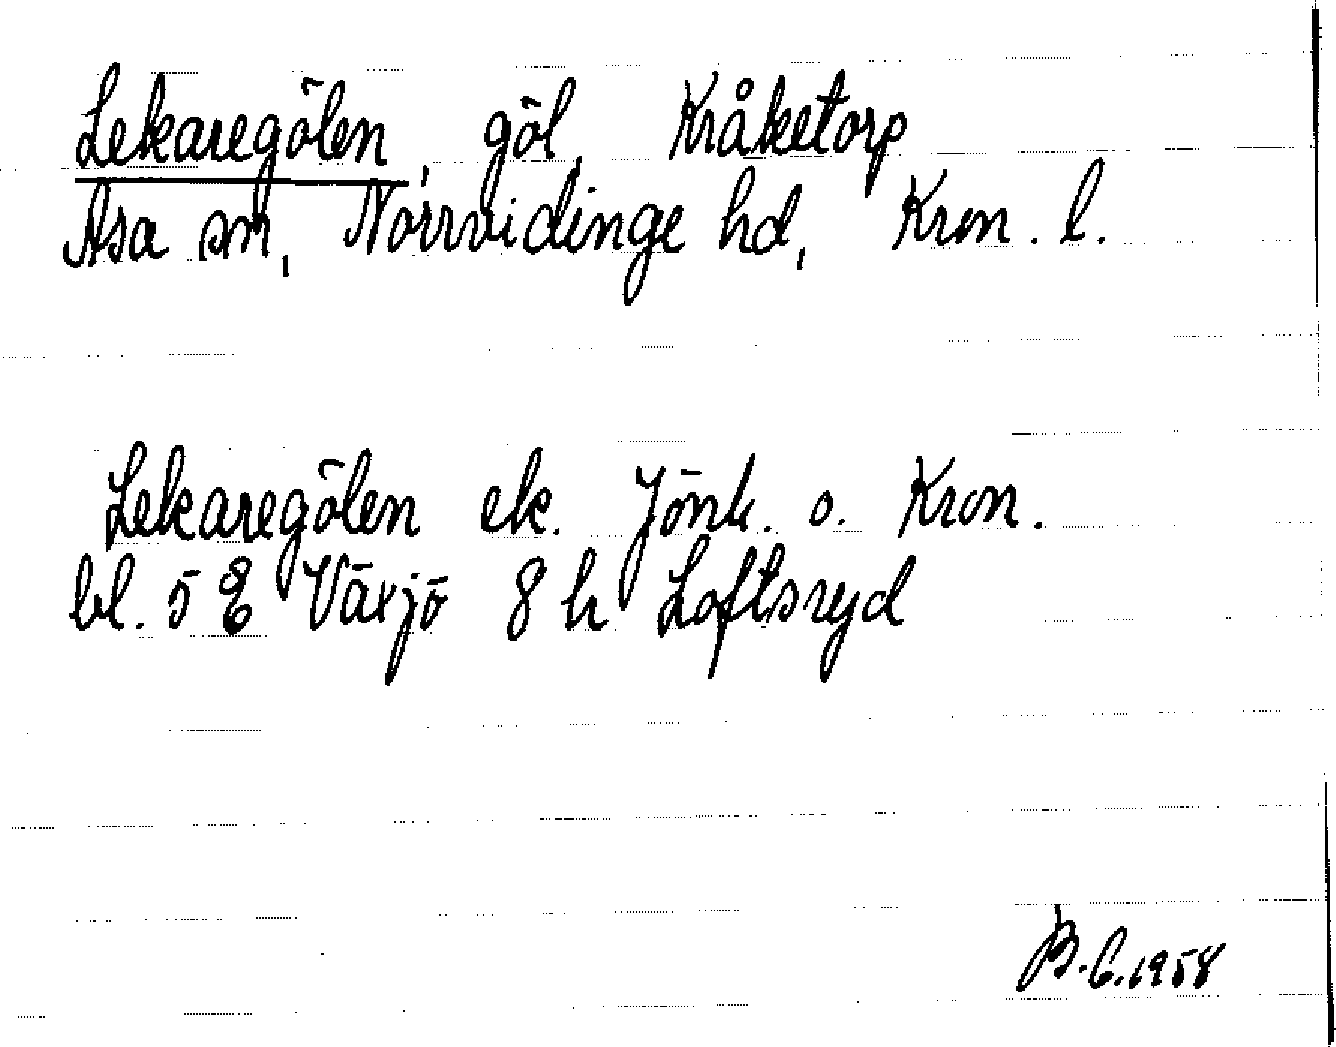 Lekaregölen, göl, Kråketorp
Asa sn, Norrvidinge hd, Kron. l.
Lekaregölen ek. Jönk. o. Kron.
bl. 5 E Växjö 8 h Loftsryd
B.C. 1958